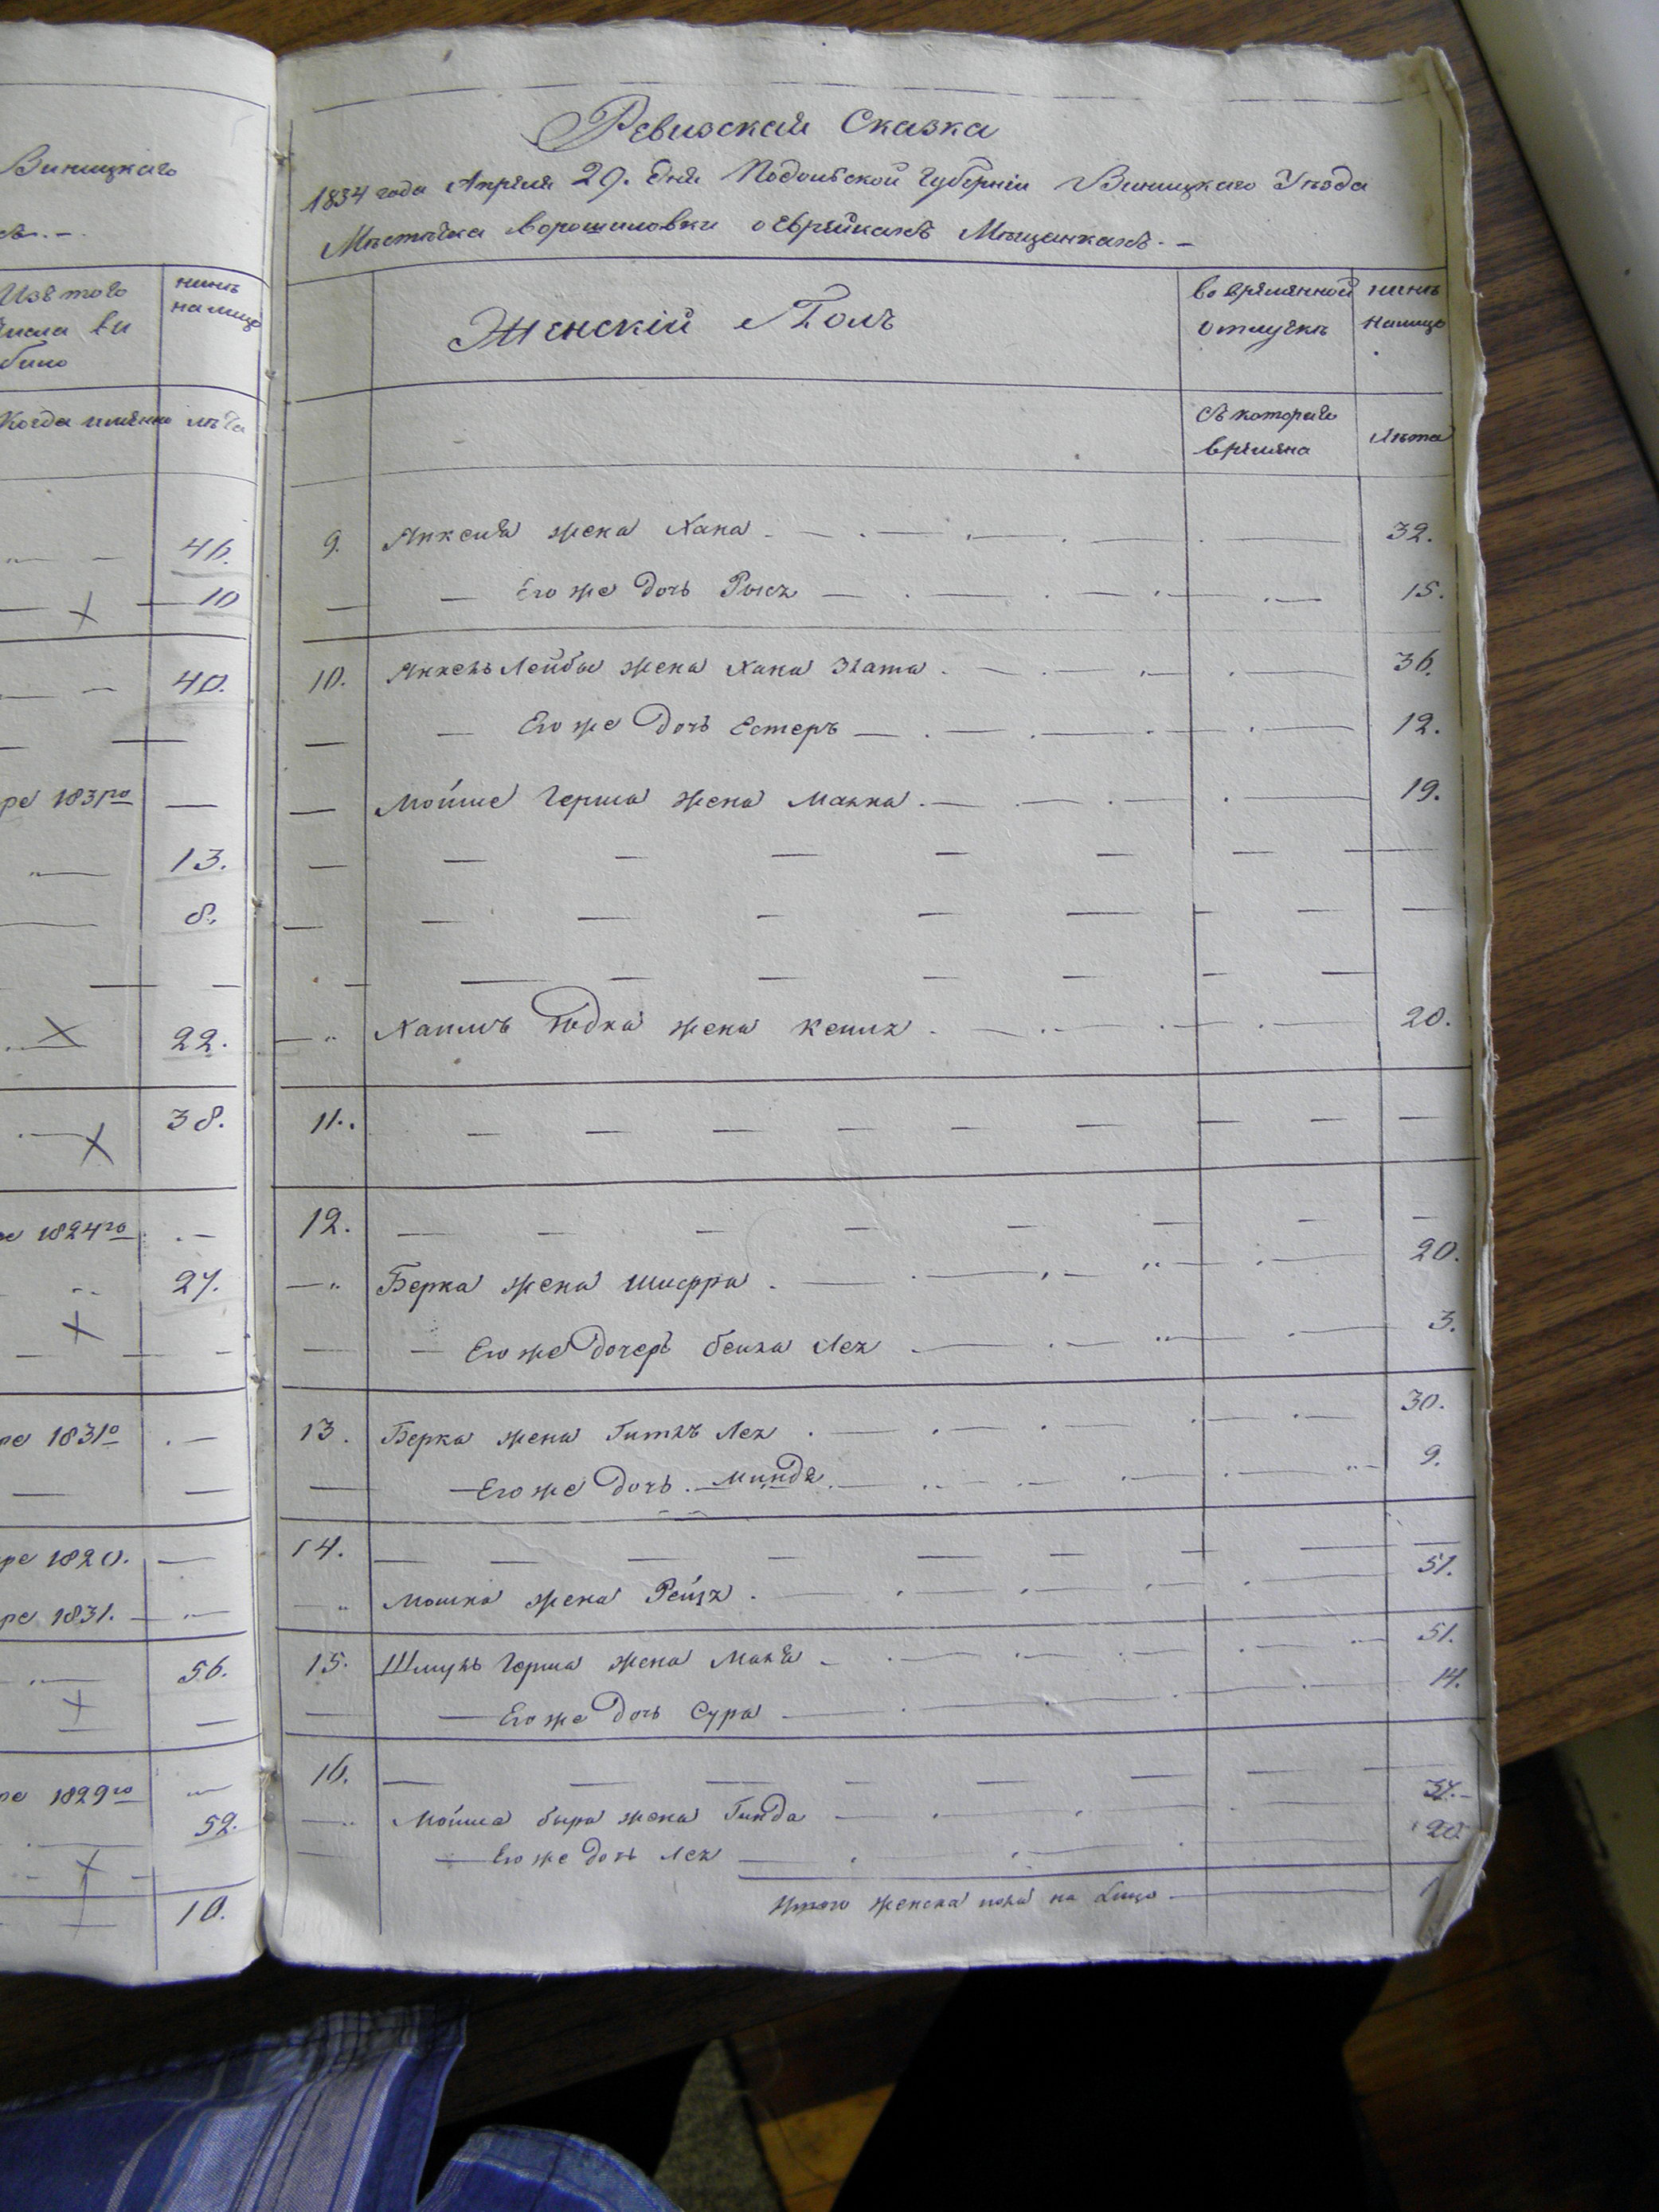 Виницкаго
Изъ того
числа вы
было
нынѣ
налицо
Когда имянно
лѣта
46.
10
40.
ре 1831го
13.
8.
22.
38.
ре 1824го
27.
ре 1831го
ре 1820.
ре 1831.
56.
ре 1829го
52.
10.
Ревизская Сказка
1834 года Апреля 29. дня Подольской Губерніи Виницкаго Уѣзда
Мѣстечка Ворошиловки о Еврейкахъ Мѣщанкахъ. —
Женскій Полъ
во временной
отлучкѣ
нынѣ
налицо
съ котораго
времяна
Лѣта
9. жена Хана 32.
Его же дочь Рыся 15.
10. Янкель Лейбы жена Хана Злата 36.
Его же дочь Естеръ 12.
Мойше Герша жена Малка 19.
Хаимъ Юдка жена 20.
11.
12.
Берка жена Шифра 20.
Его же дочерь Бейла Лея 3.
13. Берка жена Гитль Лея 30.
Его же дочь Минда 9.
14.
Мошка жена Рейзя 51.
15. Шмуль Герша жена 51.
Его же дочь Сура 14.
16.
Мойша жена Гинда 37.
Его же дочь Лея 20.
Итого женска пола на лицо